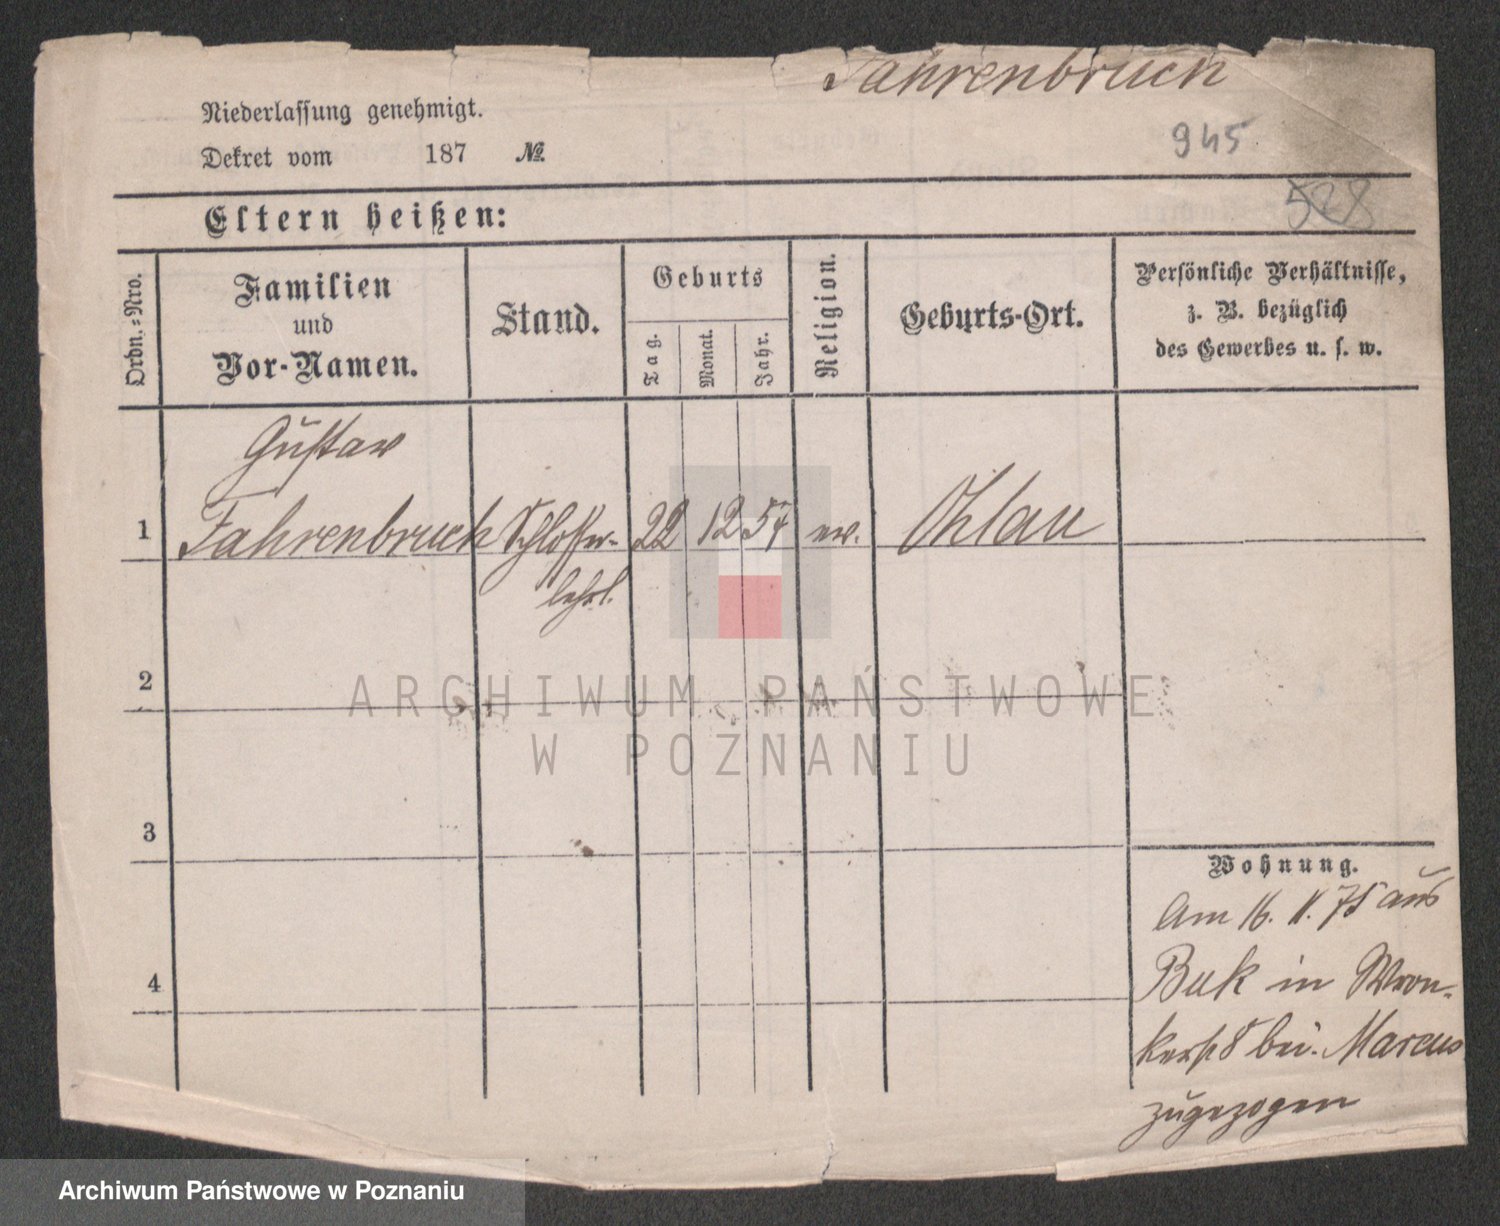 Fahrenbruch
Niederlassung genehmigt.
945
Dekret vom 187 №
528
Eltern heißen:
Ordn.-Nro.
Familien
und
Vor-Namen.
Stand.
Geburts
Tag.
Monat.
Jahr.
Religion.
Geburts-Ort.
Persönliche Verhältnisse,
z. B. bezüglich
des Gewerbes u. s. w.
Gustav
1 Fahrenbruch Schlosser- 22 12 57 ev. Ohlau
lehrl.
2
ARCHIWUM PAŃSTWOWE
W POZNANIU
3
Wohnung.
Am 16. 11. 75 aus
4
Buk in Wron-
kerst 8 bei Marcus
zugezogen
Archiwum Państwowe w Poznaniu